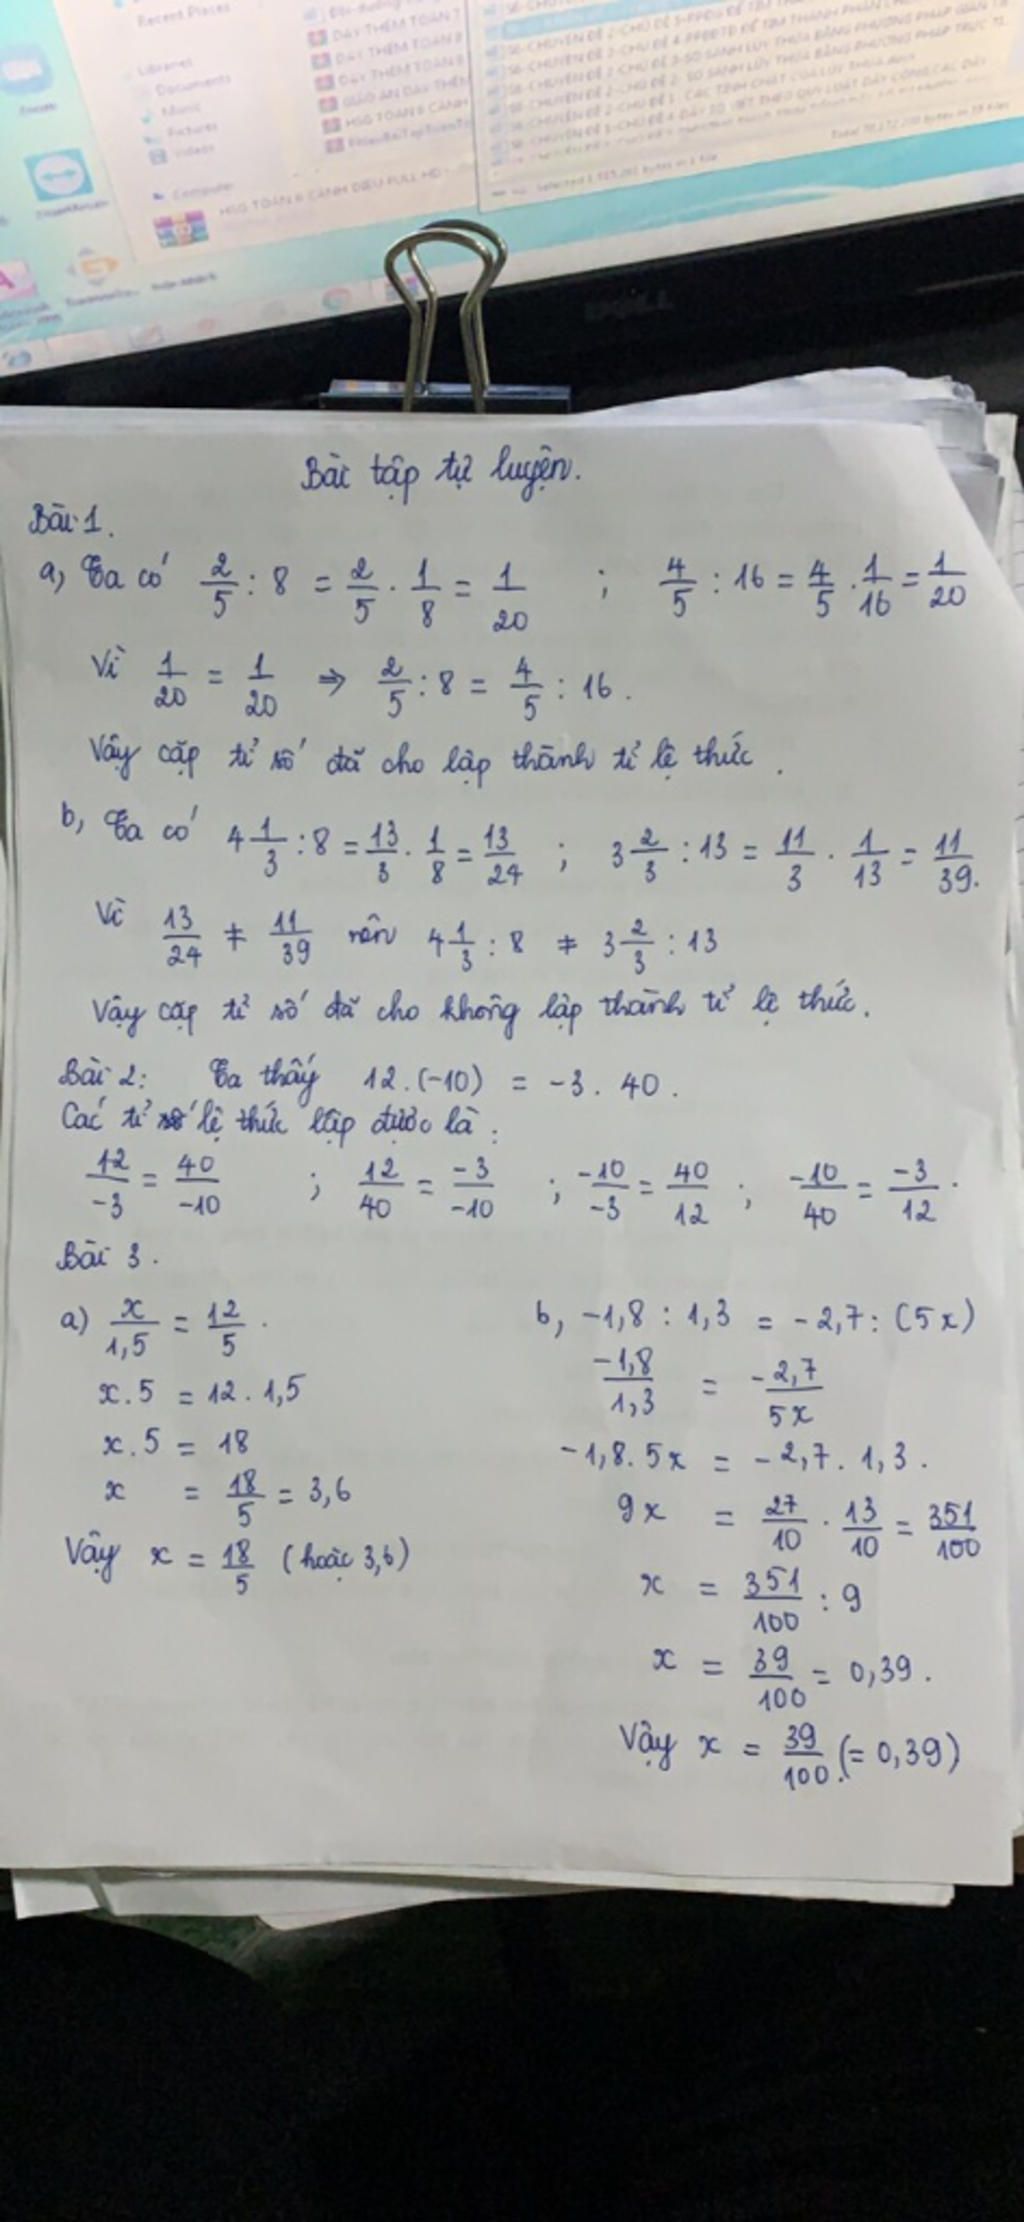 Recent Places
Libraries
Documents
Music
Pictures
Videos
Computer
HSG TOÁN 6 CÁNH DIỀU FULL HD
DELL
Bài tập tự luyện.
Bài 1.
a, Ta có 2/5 : 8 = 2/5 . 1/8 = 1/20 ; 4/5 : 16 = 4/5 . 1/16 = 1/20
Vì 1/20 = 1/20 ⇒ 2/5 : 8 = 4/5 : 16 .
Vậy cặp tỉ số đã cho lập thành tỉ lệ thức .
b, Ta có 4 1/3 : 8 = 13/3 . 1/8 = 13/24 ; 3 2/3 : 13 = 11/3 . 1/13 = 11/39.
Vì 13/24 ≠ 11/39 nên 4 1/3 : 8 ≠ 3 2/3 : 13
Vậy cặp tỉ số đã cho không lập thành tỉ lệ thức .
Bài 2: Ta thấy 12.(-10) = -3 . 40 .
Các tỉ lệ thức lập được là :
12/-3 = 40/-10 ; 12/40 = -3/-10 ; -10/-3 = 40/12 ; -10/40 = -3/12 .
Bài 3 .
a) x/1,5 = 12/5 .
x.5 = 12 . 1,5
x.5 = 18
x = 18/5 = 3,6
Vậy x = 18/5 (hoặc 3,6)
b, -1,8 : 1,3 = -2,7 : (5x)
-1,8/1,3 = -2,7/5x
-1,8. 5x = -2,7 . 1,3 .
9x = 27/10 . 13/10 = 351/100
x = 351/100 : 9
x = 39/100 = 0,39 .
Vậy x = 39/100 (= 0,39)